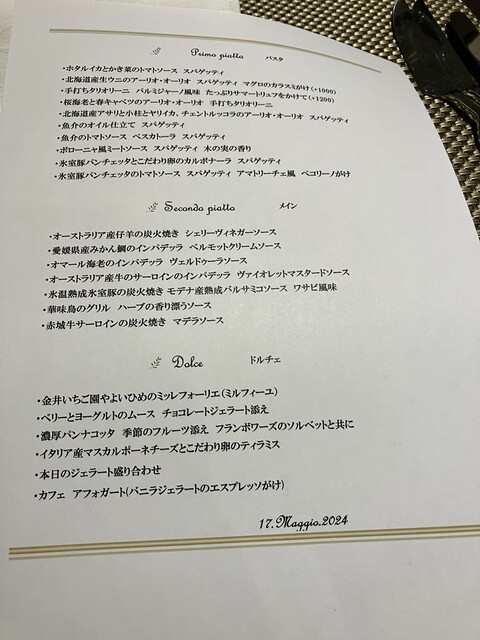 Primo piatto パスタ
・ホタルイカとかき菜のトマトソース スパゲッティ
・北海道産生ウニのアーリオ・オーリオ スパゲッティ マグロのカラスミがけ(+1000)
・手打ちタリオリーニ パルミジャーノ風味 たっぷりサマートリュフをかけて(+1200)
・桜海老と春キャベツのアーリオ・オーリオ 手打ちタリオリーニ
・北海道産アサリと小柱とヤリイカ、チェントルッコラのアーリオ・オーリオ スパゲッティ
・魚介のオイル仕立て スパゲッティ
・魚介のトマトソース ペスカトーラ スパゲッティ
・ボローニャ風ミートソース スパゲッティ 木の実の香り
・氷室豚パンチェッタとこだわり卵のカルボナーラ スパゲッティ
・氷室豚パンチェッタのトマトソース スパゲッティ アマトリチェーナ風 ペコリーノがけ
Secondo piatto メイン
・オーストラリア産仔羊の炭火焼き シェリーヴィネガーソース
・愛媛県産みかん鯛のインパデッラ ベルモットクリームソース
・オマール海老のインパデッラ ヴェルドゥーラソース
・オーストラリア産牛のサーロインのインパデッラ ヴァイオレットマスタードソース
・氷温熟成氷室豚の炭火焼き モデナ産熟成バルサミコソース ワサビ風味
・華味鳥のグリル ハーブの香り漂うソース
・赤城牛サーロインの炭火焼き マデラソース
Dolce ドルチェ
・金井いちご園やよいひめのミッレフォーリエ(ミルフィーユ)
・ベリーとヨーグルトのムース チョコレートジェラート添え
・濃厚パンナコッタ 季節のフルーツ添え フランボワーズのソルベットと共に
・イタリア産マスカルポーネチーズとこだわり卵のティラミス
・本日のジェラート盛り合わせ
・カフェ アフォガート(バニラジェラートのエスプレッソがけ)
17.Maggio.2024